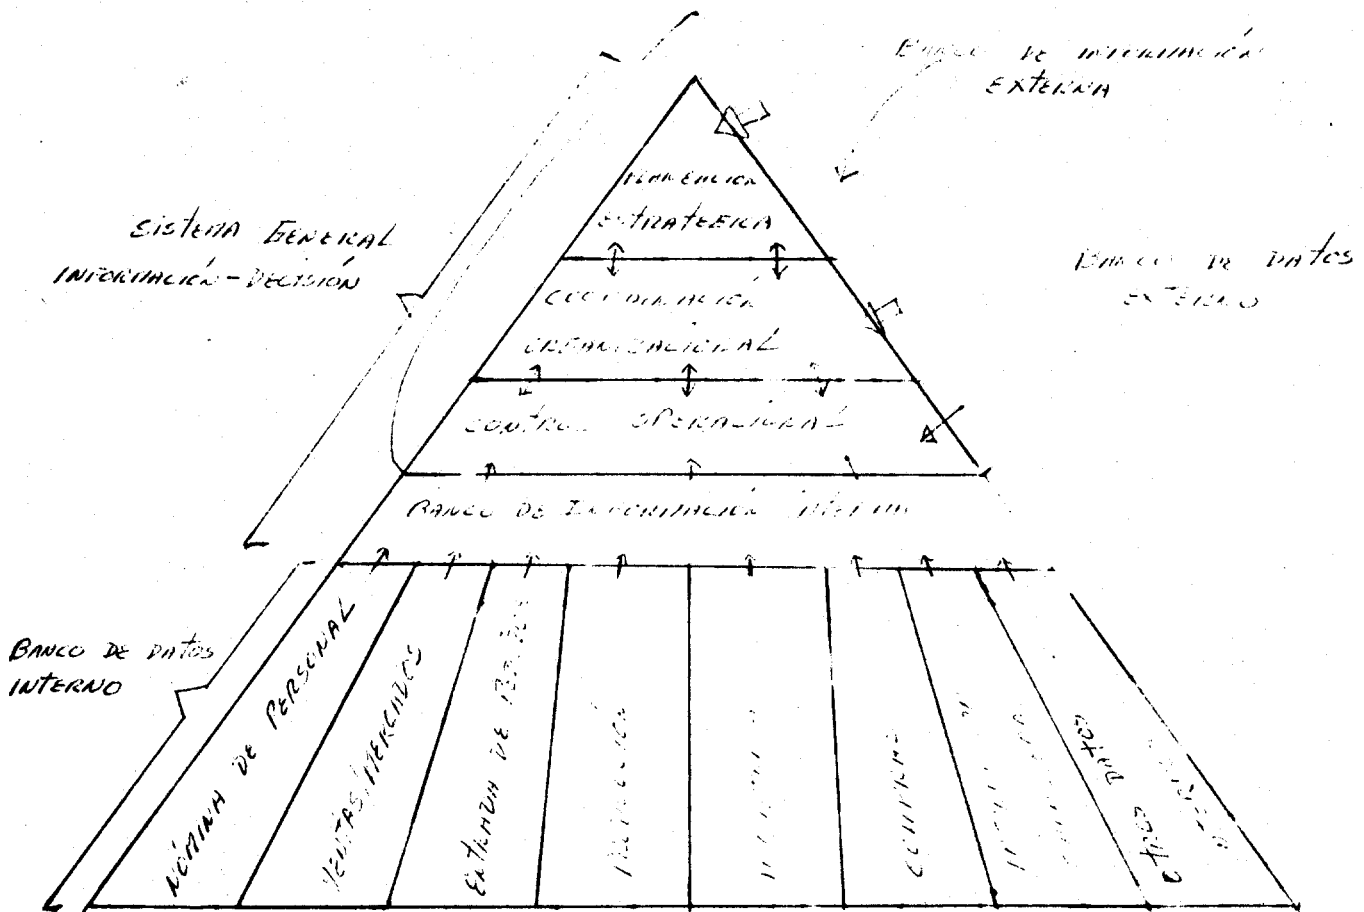 BANCO DE INFORMACIÓN
EXTERNA
PLANEACION
ESTRATEGICA
SISTEMA GENERAL
INFORMACIÓN-DECISIÓN
BANCO DE DATOS
EXTERNO
COORDINACIÓN
ORGANIZACIONAL
CONTROL OPERACIONAL
BANCO DE INFORMACIÓN INTERNA
BANCO DE DATOS
INTERNO
NÓMINA DE PERSONAL
VENTAS/MERCADOS
ENTRADA DE
PRODUCCIÓN
COMPRAS
OTROS DATOS